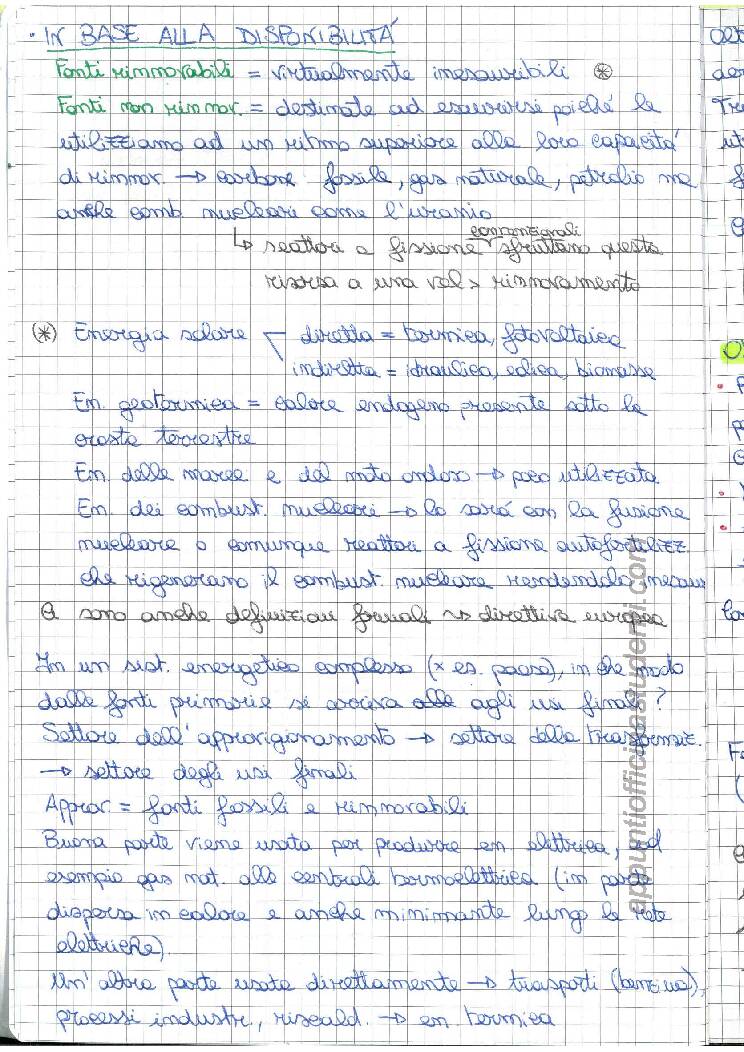 · IN BASE ALLA DISPONIBILITÁ
Fonti rinnovabili = virtualmente inesauribili (*)
Fonti non rinnov. = destinate ad esaurirsi poiché le
utilizziamo ad un ritmo superiore alla loro capacitá
di rinnov. → carbone fossile, gas naturale, petrolio ma
anche comb. nucleari come l'uranio
convenzionali
↳ reattori a fissione sfruttano questa
risorsa a una vel > rinnovamento
(*) Energia solare diretta = termica, fotovoltaica
indiretta = idraulica, eolica, biomasse
En. geotermica = calore endogeno presente sotto la
crosta terrestre
En. delle maree e del moto ondoso → poco utilizzata
En. dei combust. nucleari → lo sará con la fusione
nucleare o comunque reattori a fissione autofertilizz.
che rigenerano il combust. nucleare rendendolo inesaur
Ci sono anche definizioni formali → direttiva europea
In un sist. energetico complesso (x es. paese), in che modo
dalle fonti primarie si arriva alle agli usi finali?
Settore dell'approvigionamento → settore della trasformaz.
→ settore degli usi finali
Approv = fonti fossili e rinnovabili
Buona parte viene usata per produrre en elettrica, ad
esempio gas nat. alle centrali termoelettrica (in parte
dispersa in calore e anche minimante lungo la rete
elettriche).
Un'altra parte usata direttamente → trasporti (benzina),
processi industr., riscald. → en. termica
appuntiofficinastudenti.com